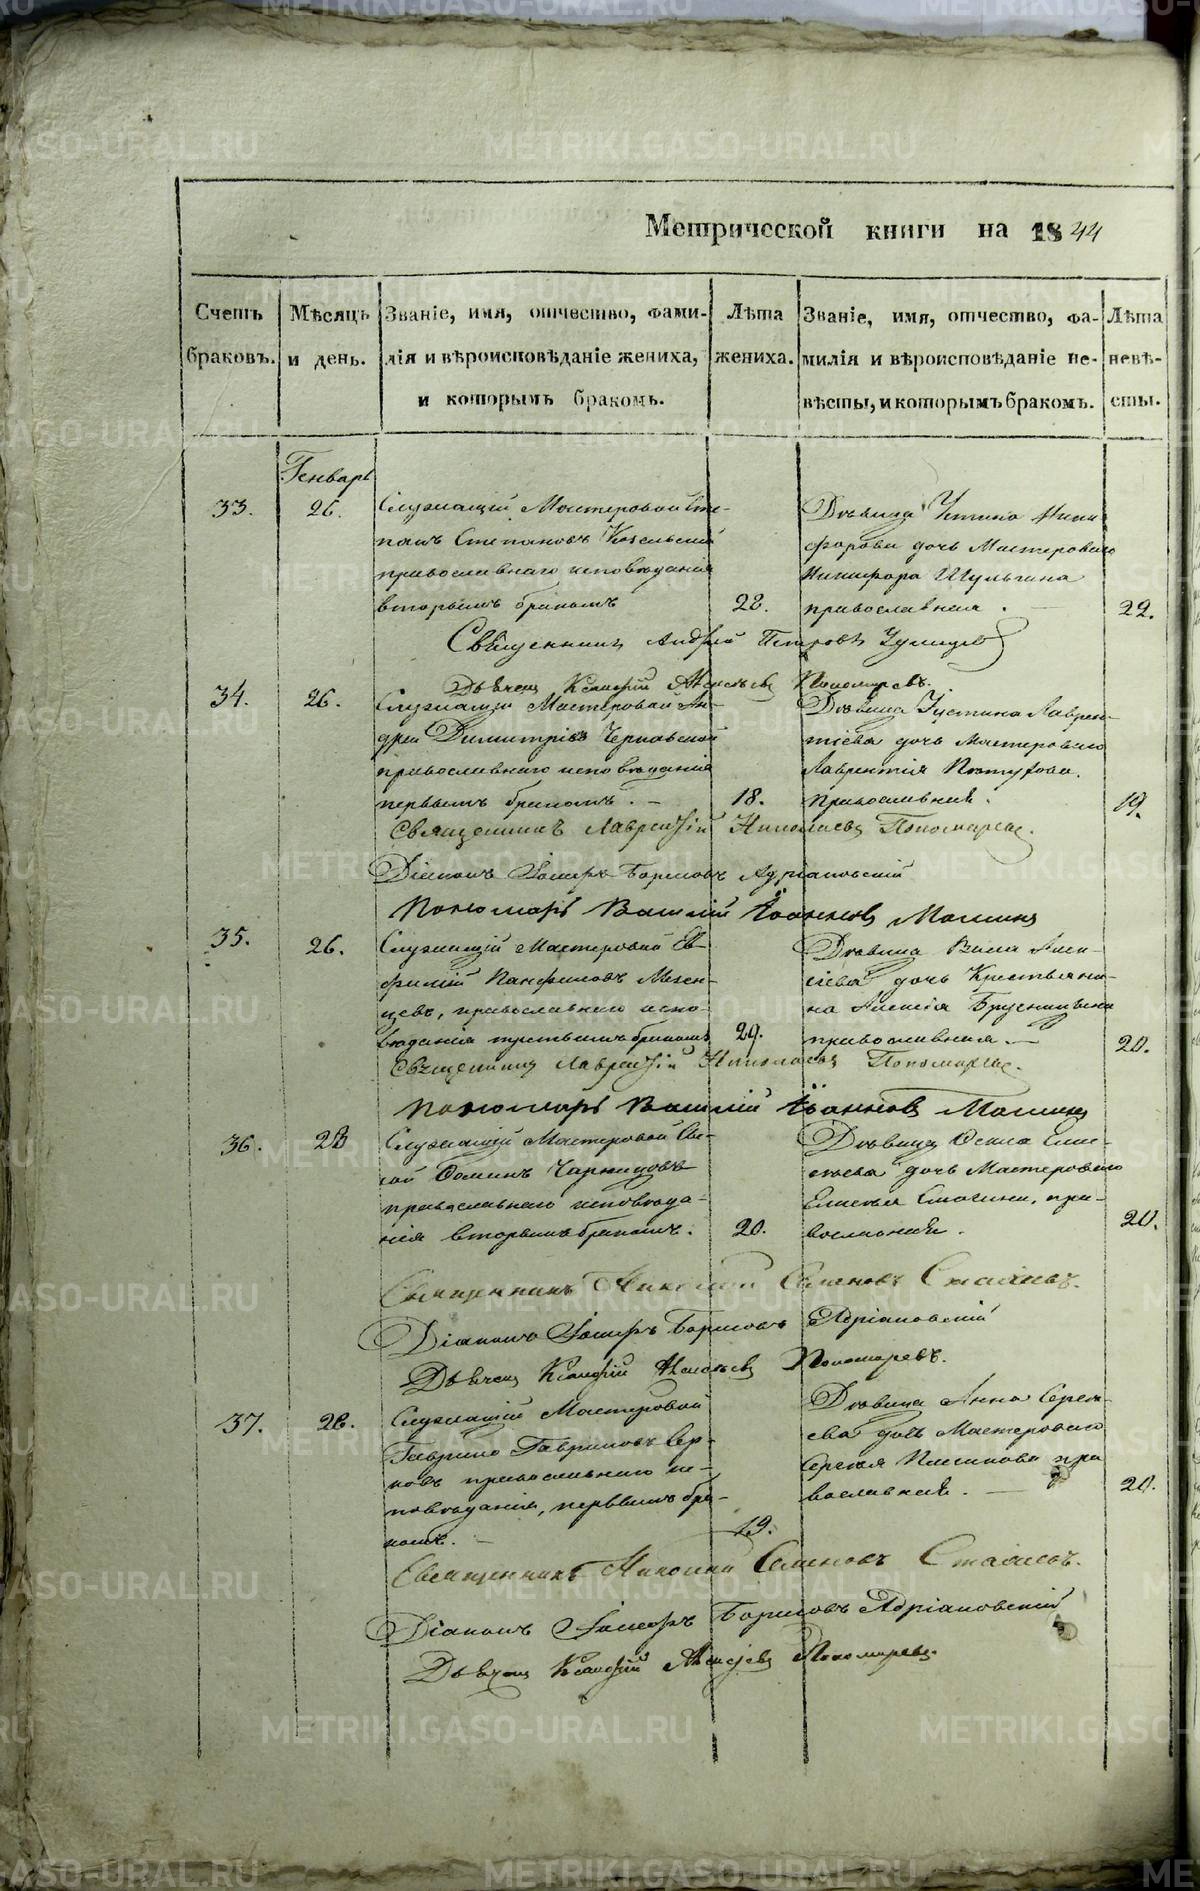 Метрической книги на 1844
Счетъ браковъ.
Мѣсяцъ и день.
Званіе, имя, отчество, фами-
лія и вѣроисповѣданіе жениха,
и которымъ бракомъ.
Лѣта жениха.
Званіе, имя, отчество, фа-
милія и вѣроисповѣданіе не-
вѣсты, и которымъ бракомъ.
Лѣта невѣ-
сты.
Генварь
33.
26.
Служащій Мастеровой Сте-
панъ Степановъ
православнаго исповѣданія
вторымъ бракомъ
22.
Дѣвица Устина Ники-
форова дочь Мастероваго
Никифора Шульгина
православная.
22.
Священникъ Андрей Петровъ
Дьячекъ Пономаревъ.
34.
26.
Служащій Мастеровой Ан-
дрей Димитріевъ
православнаго исповѣданія
первымъ бракомъ.
18.
Дѣвица Устина Лаврен-
тіева дочь Мастероваго
Лаврентія
Православная.
19.
Священникъ Лаврентій Николаевъ Пономаревъ.
Діаконъ Борисовъ Адріановскій
Пономарь Василій Іоанновъ
35.
26.
Служащій Мастеровой Ев-
фимій Панфиловъ Мезен-
цевъ, православнаго испо-
вѣданія третьимъ бракомъ
29.
Дѣвица Алек-
сіева дочь Крестьяни-
на Алексія Брусницына
православная.
20.
Священникъ Лаврентій Николаевъ Пономаревъ.
Пономарь Василій Іоанновъ
36.
28
Служащій Мастеровой
православнаго исповѣда-
нія вторымъ бракомъ.
20.
Дѣвица Ели-
сѣева дочь Мастероваго
Елисѣя пра-
вославная.
20.
Священникъ Николай Семеновъ
Діаконъ Борисовъ Адріановскій
Дьячекъ Пономаревъ.
37.
28.
Служащій Мастеровой
Гаврило Гавриловъ Сер-
ковъ православнаго ис-
повѣданія, первымъ бра-
комъ.
19.
Дѣвица Анна Серге-
ева дочь Мастероваго
Сергея пра
вославная.
20.
Священникъ Николай Семеновъ
Діаконъ Борисовъ Адріановскій
Дьячекъ Пономаревъ.
METRIKI.GASO-URAL.RU